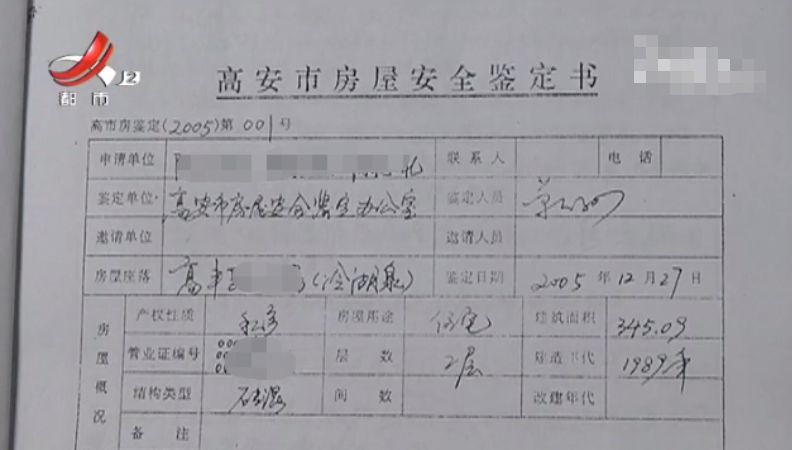 J2
都市
高安市房屋安全鉴定书
高市房鉴定(2005)第001号
申请单位 联系人 电话
鉴定单位 高安市房屋安全鉴定办公室 鉴定人员
邀请单位 邀请人员
房屋座落 高丰 (冷湖泉) 鉴定日期 2005年12月27日
房屋概况
产权性质 私房 房屋用途 住宅 建筑面积 345.09
管业证编号 层数 2层 建造年代 1989年
结构类型 砖混 间数 改建年代
备注